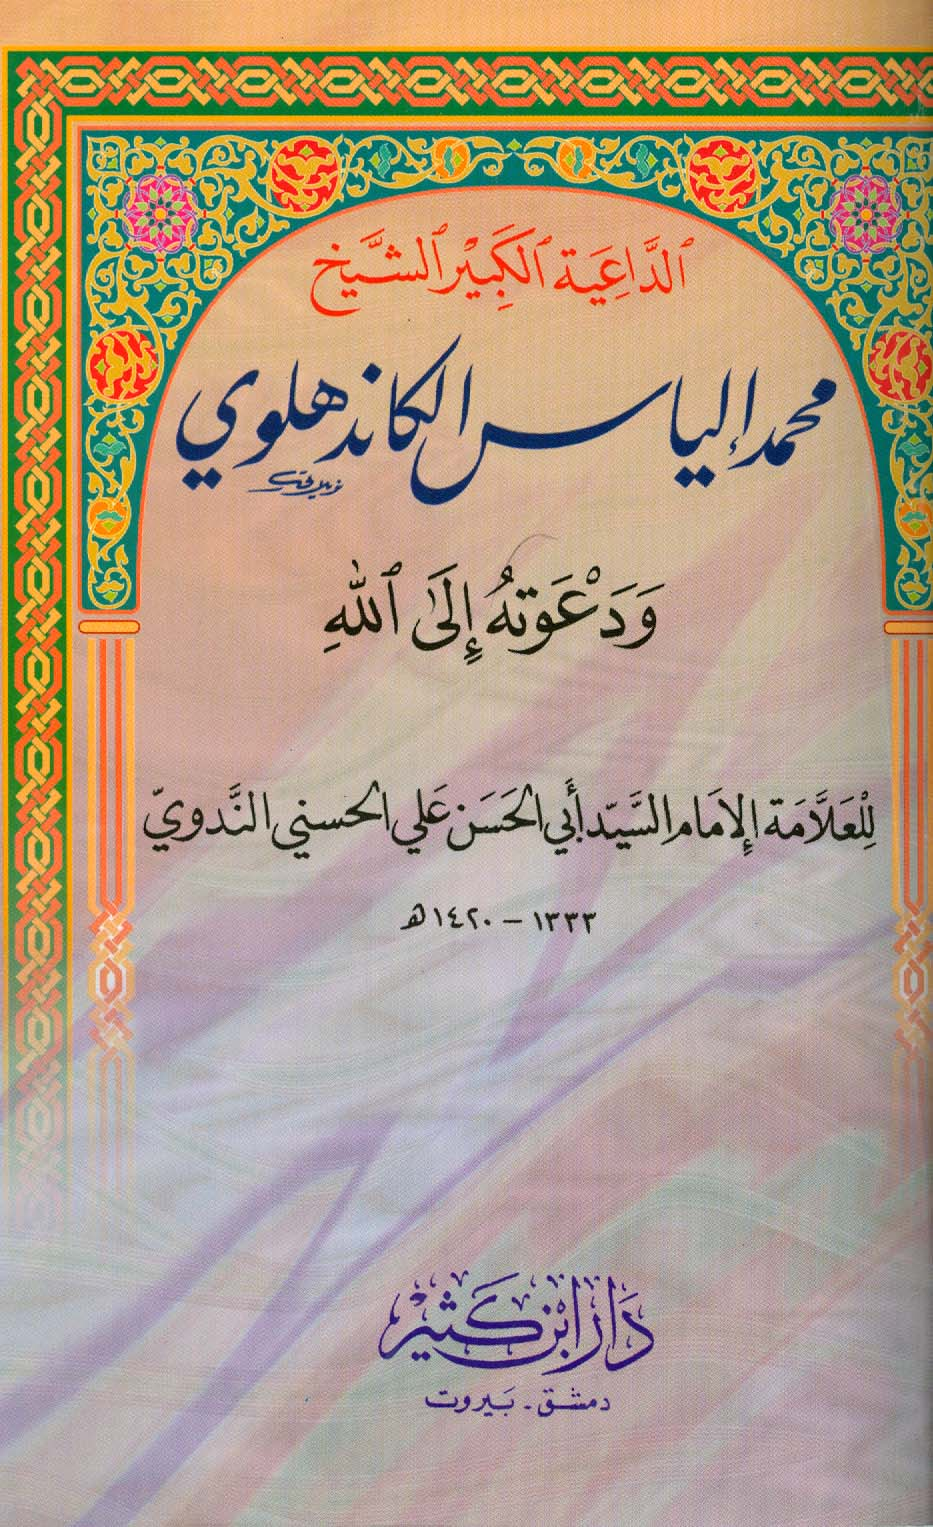 ٱلدَّاعِيَة ٱلكَبِيْر ٱلشَّيْخ
محمد إلياس الكاندهلوي
وَدَعْوَتهُ إِلَىٰ ٱللّٰهِ
لِلعَلَّامَة الإِمَام السَّيِّد أَبي الحَسَن عَلي الحسني النَّدويّ
١٣٣٣ - ١٤٢٠ هـ
دَار ابْن كَثِيْر
دمشق - بَيروت